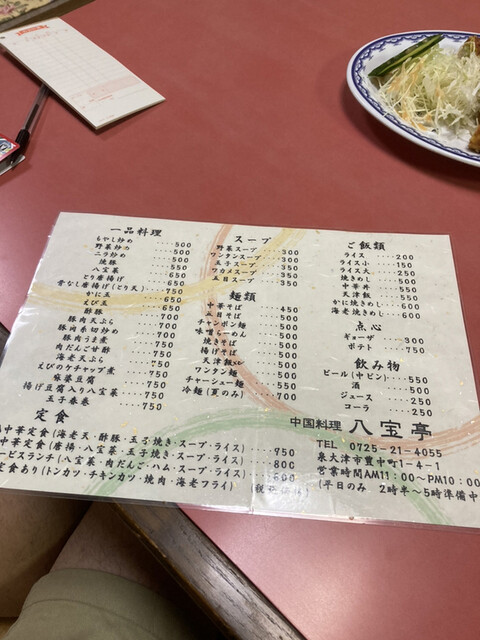 一品料理
もやし炒め ‥‥500
野菜炒め ‥‥500
ニラ炒め ‥‥500
焼豚 ‥‥550
八宝菜 ‥‥550
とり唐揚げ ‥‥650
骨なし唐揚げ(とり天) ‥‥750
かに玉 ‥‥650
えび玉 ‥‥650
酢豚 ‥‥650
豚肉天ぷら ‥‥700
豚肉糸切炒め ‥‥700
豚肉うま煮 ‥‥700
肉だんご甘酢 ‥‥750
海老天ぷら ‥‥750
えびのケチャップ煮 ‥‥750
麻婆豆腐 ‥‥750
揚げ豆腐入り八宝菜 ‥‥750
玉子春巻 ‥‥750
スープ
野菜スープ ‥‥300
ワンタンスープ ‥‥300
玉子スープ ‥‥350
ワカメスープ ‥‥350
五目スープ ‥‥350
麺類
中華そば ‥‥450
五目そば ‥‥500
チャンポン麺 ‥‥500
味噌らーめん ‥‥500
焼きそば ‥‥500
揚げそば ‥‥500
天津麺 ‥‥550
ワンタン麺 ‥‥550
チャーシュー麺 ‥‥550
冷麺(夏のみ) ‥‥700
ご飯類
ライス ‥‥200
ライス小 ‥‥150
ライス大 ‥‥250
焼きめし ‥‥500
中華丼 ‥‥550
天津飯 ‥‥550
かに焼きめし ‥‥600
海老焼きめし ‥‥600
点心
ギョーザ ‥‥300
ポテト ‥‥300
飲み物
ビール(中ビン) ‥‥550
酒 ‥‥500
ジュース ‥‥250
コーラ ‥‥250
定食
中華定食(海老天・酢豚・玉子焼き・スープ・ライス) ‥‥950
中華定食(唐揚・八宝菜・玉子焼き・スープ・ライス) ‥‥800
ービスランチ(八宝菜・肉だんご・ハム・スープ・ライス) ‥‥600
定食あり(トンカツ・チキンカツ・焼肉・海老フライ)
中国料理 八宝亭
TEL 0725-21-4055
泉大津市豊中町1-4-1
営業時間AM11:00~PM10:00
(平日のみ 2時半~5時準備中